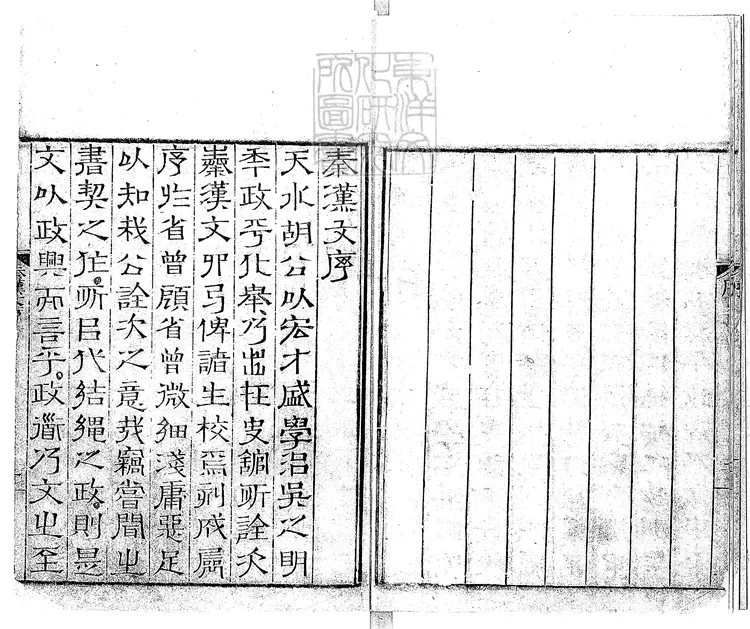 秦漢文序
天水胡公以宏才盛學治吳之明
年政平化舉乃出在史館所詮次
秦漢文四弓俾諸生校焉刻成屬
序於省曾顧省曾微細淺庸惡足
以知我公詮次之意哉竊嘗聞之
書契之作所㠯代結繩之政則是
文以政興而言乎政衟乃文之至
秦漢文序
序
東洋文
化研究
所圖書